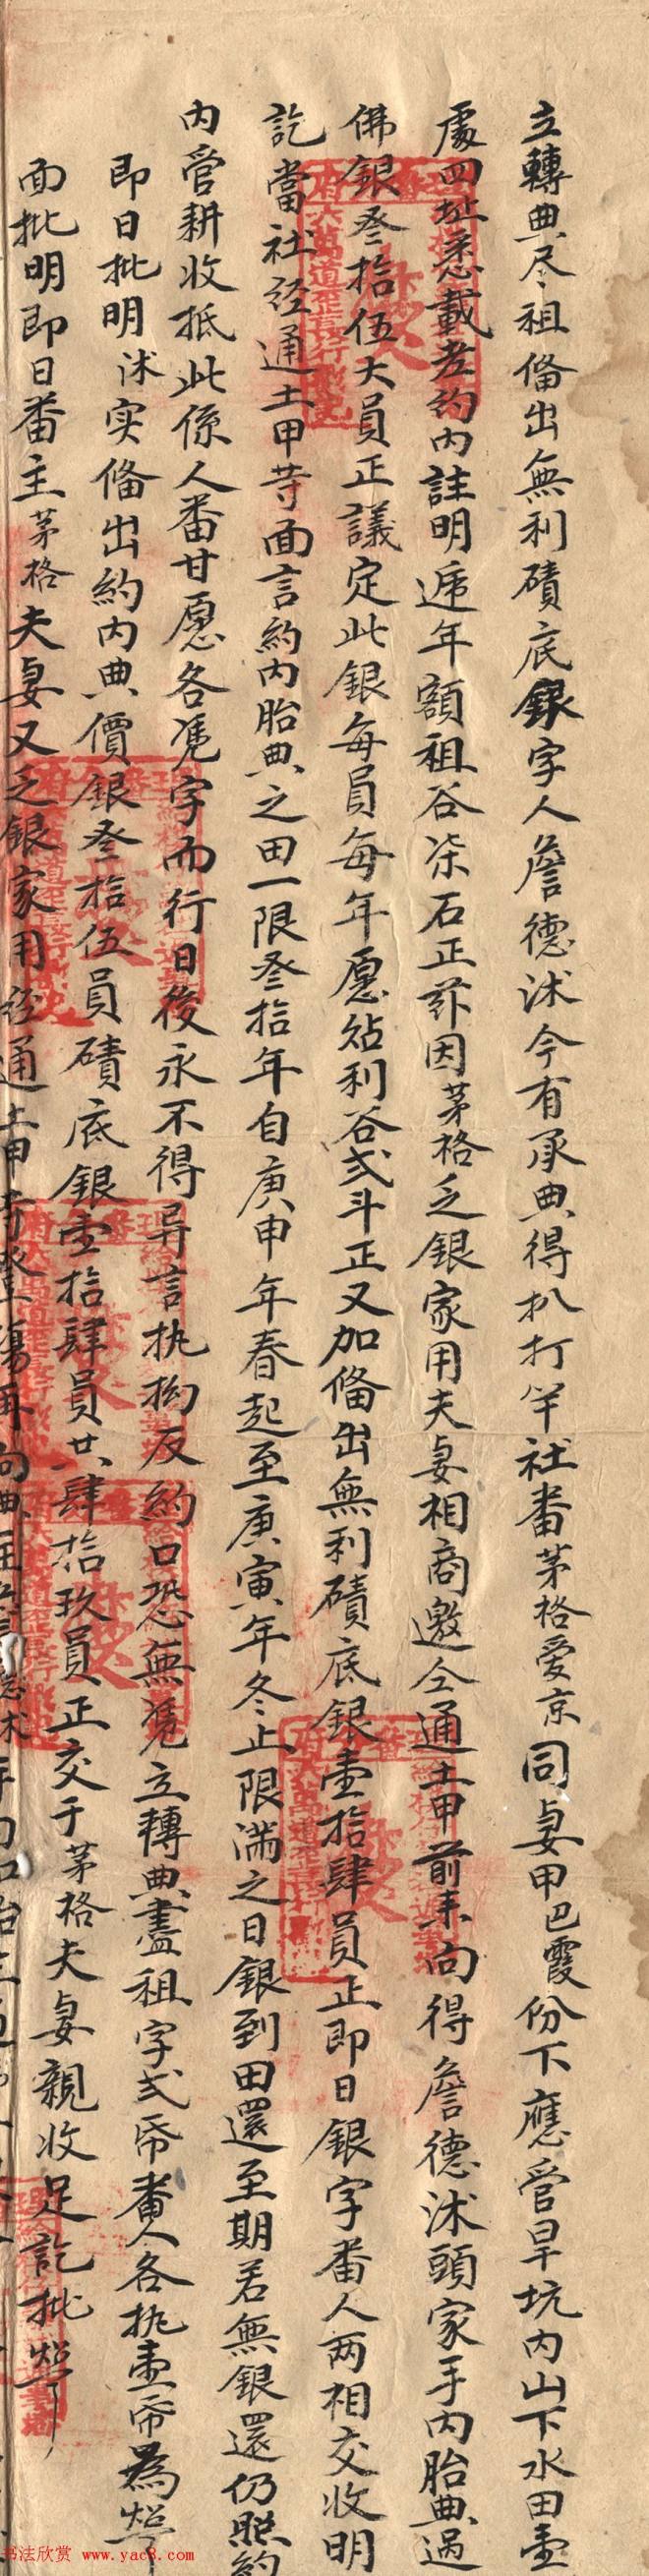 立轉典尽租偹出無利磧底銀字人詹德沭今有承典得扒打罕社番茅格爱京同妻甲巴霞份下應管旱坑内山下水田壹
處四址悉載老約内註明遞年額租谷柒石正茲因茅格乏銀家用夫妻相商邀仝通土甲前来向得詹德沭頭家手内胎典過
佛銀叁拾伍大員正議定此銀每員每年愿貼利谷弍斗正又加偹出無利磧底銀壹拾肆員正即日銀字番人两相交收明
訖當社經通土甲等面言約内胎典之田一限叁拾年自庚申年春起至庚寅年冬止限滿之日銀到田還至期若無銀還仍照約
内管耕收抵此係人番甘愿各凭字而行日後永不得异言执拗反約口恐無凭立轉典盡租字弍帋番人各执壹帋為炤
即日批明沭实偹出約内典價銀叁拾伍員磧底銀壹拾肆員共肆拾玖員正交于茅格夫妻親收足訖批炤
面批明即日番主茅格夫妻又乏銀家用經通土甲等
书法欣赏 www.yac8.com